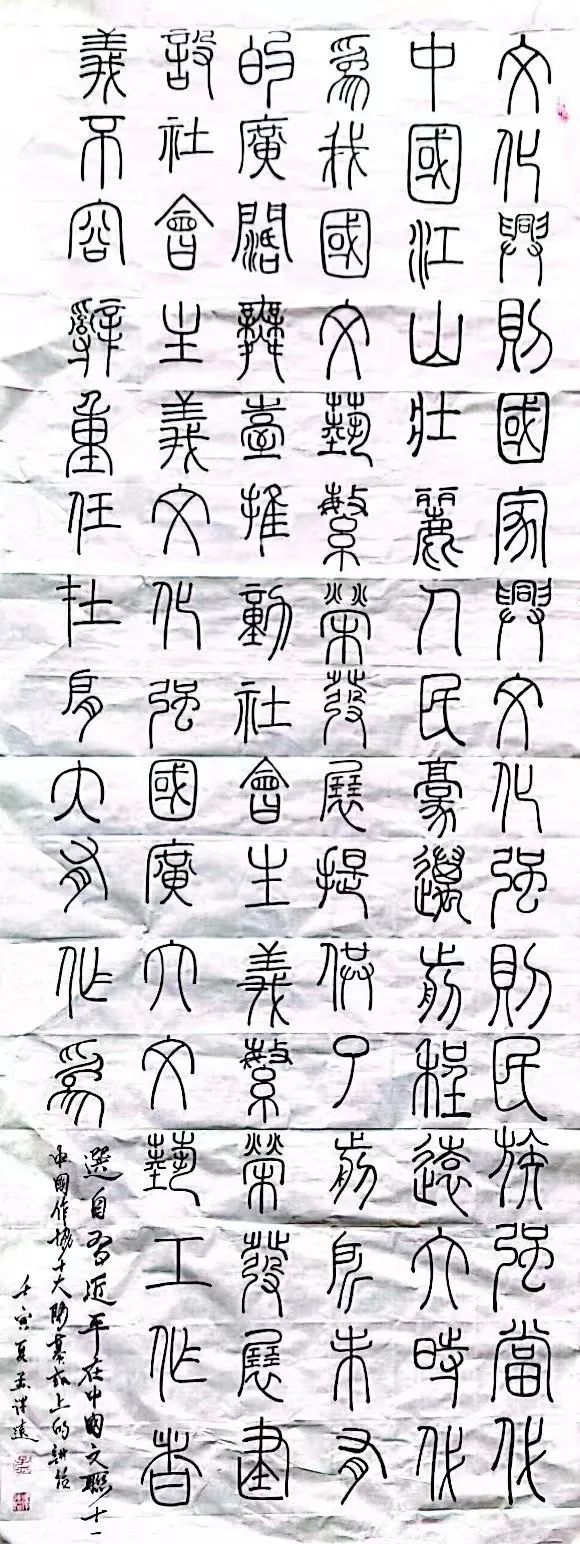 文化興則國家興文化强則民族强當代
中國江山壯麗人民豪邁前程遠大時代
爲我國文藝繁榮發展提供了前所未有
的廣闊舞臺推動社會主義繁榮發展建
設社會主義文化强國廣大文藝工作者
義不容辭重任在肩大有作爲
選自習近平在中國文聯十一
中國作協十大開幕式上的講話
壬寅夏孟